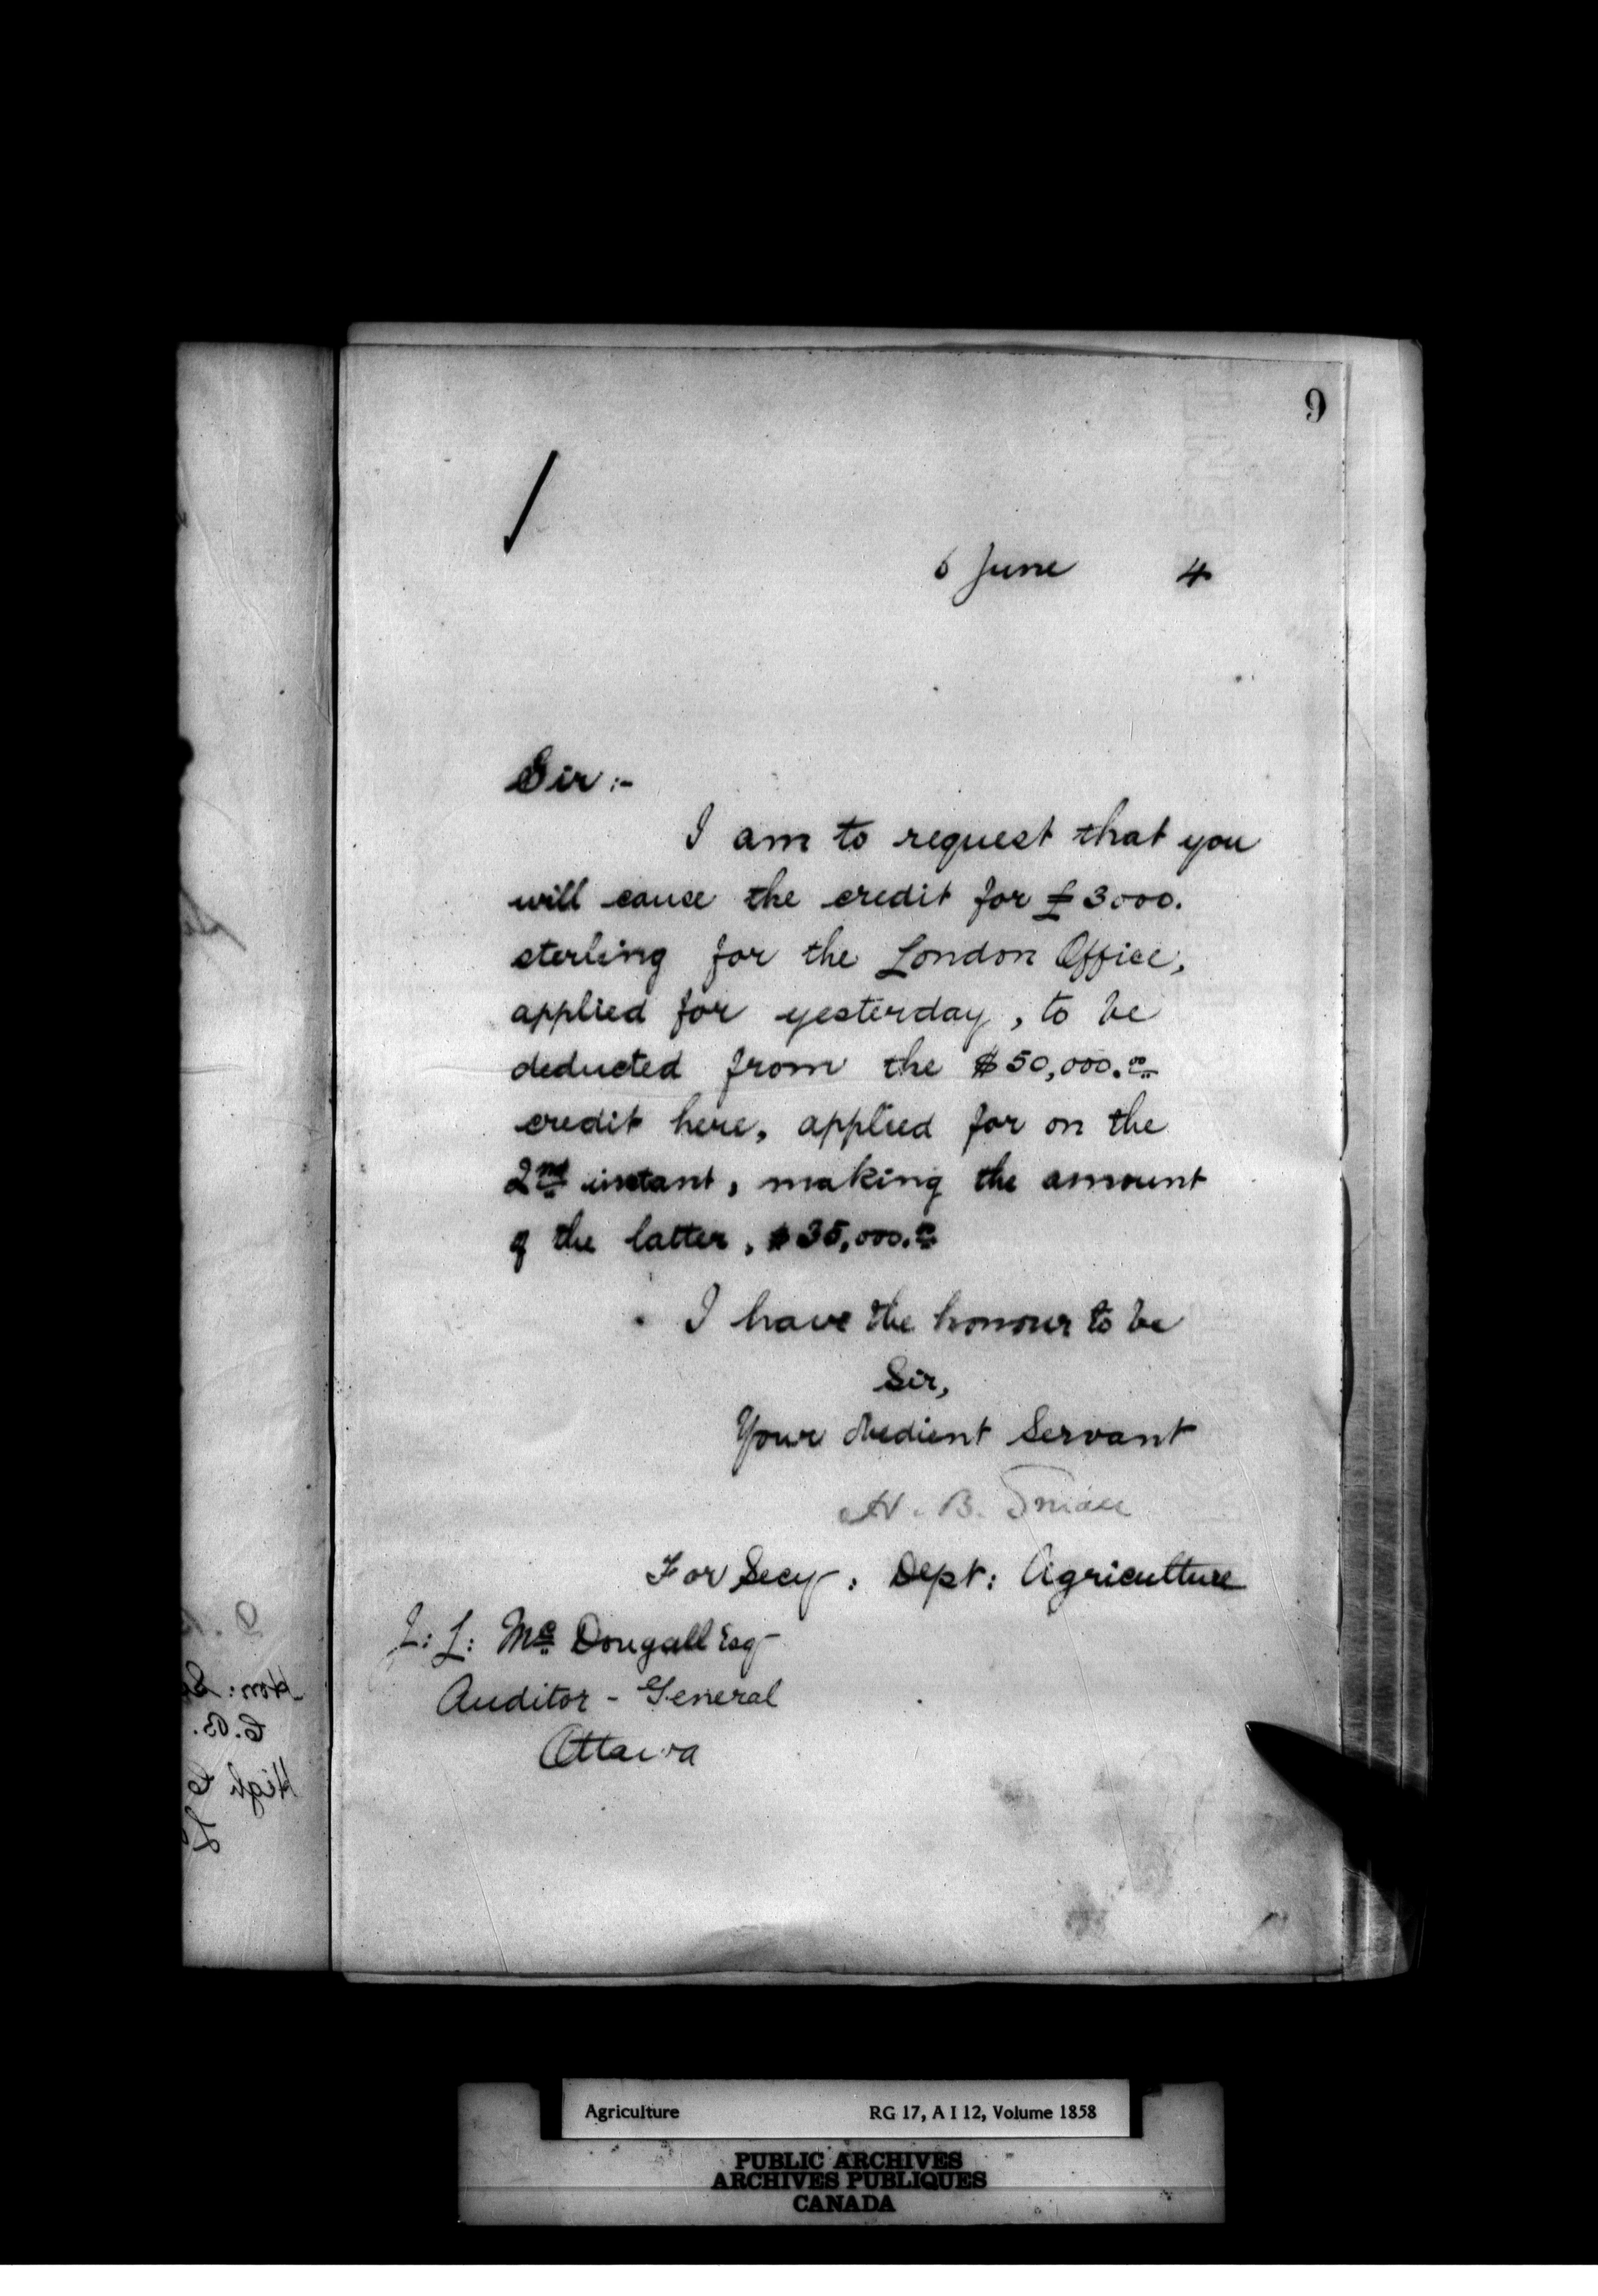 9
6 June 4
Sir:-
I am to request that you
will cause the credit for £3000.
sterling for the London Office,
applied for yesterday, to be
deducted from the $50,000.00
credit here, applied for on the
2nd instant, making the amount
of the latter, $35,000.00
I have the honour to be
Sir,
Your obedient Servant
H. B. Small
For Secy: Dept: Agriculture
J: L: Mc Dougall Esq
Auditor - General
Ottawa
Hon: S
C.B.
High C
L
Agriculture RG 17, A I 12, Volume 1858
PUBLIC ARCHIVES
ARCHIVES PUBLIQUES
CANADA